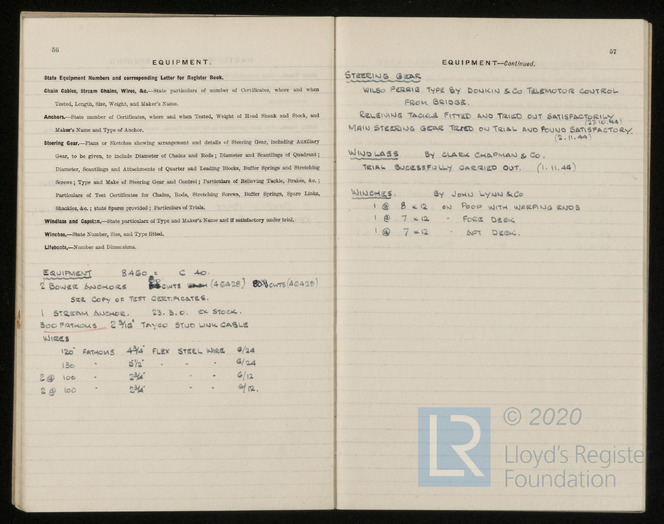 56
EQUIPMENT.
State Equipment Numbers and corresponding Letter for Register Book.
Chain Cables, Stream Chains, Wires, &c.—State particulars of number of Certificates, where and when
Tested, Length, Size, Weight, and Maker's Name.
Anchors.—State number of Certificates, where and when Tested, Weight of Head Shank and Stock, and
Maker's Name and Type of Anchor.
Steering Gear.—Plans or Sketches shewing arrangement and details of Steering Gear, including Auxiliary
Gear, to be given, to include Diameter of Chains and Rods; Diameter and Scantlings of Quadrant;
Diameter, Scantlings and Attachments of Quarter and Leading Blocks, Buffer Springs and Stretching
Screws; Type and Make of Steering Gear and Control; Particulars of Relieving Tackle, Brakes, &c.;
Particulars of Test Certificates for Chains, Rods, Stretching Screws, Buffer Springs, Spare Links,
Shackles, &c.; state Spares provided; Particulars of Trials.
Windlass and Capstan.—State particulars of Type and Maker's Name and if satisfactory under trial.
Winches.—State Number, Size, and Type fitted.
Lifeboats.—Number and Dimensions.
EQUIPMENT 8460 = C 40.
2 BOWER ANCHORS CWTS (46428) CWTS (46429)
SEE COPY OF TEST CERTIFICATES.
1 STREAM ANCHOR. 23. 3. 0. EX STOCK.
300 FATHOMS 2 3/16" TAYCO STUD LINK CABLE
WIRES
120 FATHOMS 4 3/4" FLEX STEEL WIRE 6/24
130 " 5 1/2" " " " 6/24
2 @ 100 " 2 3/4" " " " 6/12
2 @ 100 " 2 3/4" " " " 6/12.
57
EQUIPMENT—Continued.
STEERING GEAR
WILSO PERRIE TYPE BY DONKIN & CO TELEMOTOR CONTROL
FROM BRIDGE.
RELEIVING TACKLE FITTED AND TRIED OUT SATISFACTORILY
(27.10.44)
MAIN STEERING GEAR TRIED ON TRIAL AND FOUND SATISFACTORY.
(2.11.44)
WINDLASS BY CLARK CHAPMAN & CO.
TRIAL SUCESSFULLY CARRIED OUT. (1.11.44)
WINCHES. BY JOHN LYNN & CO
1 @ 8 x 12 ON POOP WITH WARPING ENDS
1 @ 7 x 12 " FORE DECK
1 @ 7 x 12 " AFT DECK.
LR
© 2020
Lloyd's Register
Foundation